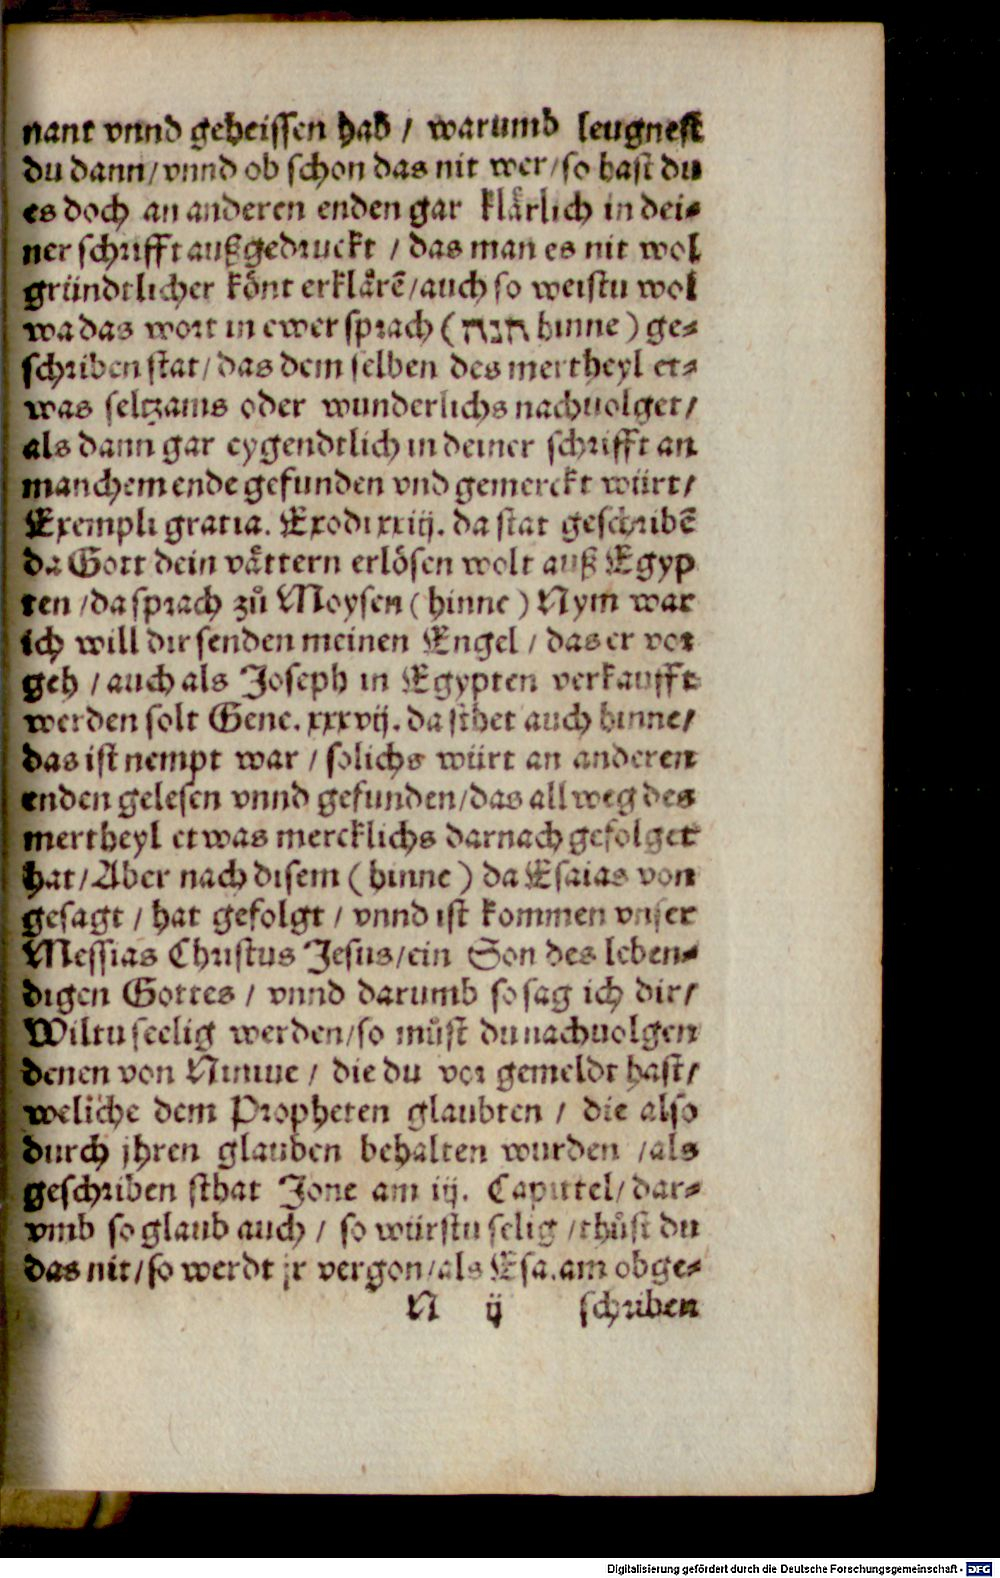 nant vnnd geheissen hab / warumb leugnest
du dann / vnnd ob schon das nit wer / so hast du
es doch an anderen enden gar klaͤrlich in dei⸗
ner schrifft außgedruckt / das man es nit wol
gründtlicher koͤnt erklaͤrē / auch so weistu wol
wa das wort in ewer sprach ( הנה hinne ) ge⸗
schriben stat / das dem selben des mertheyl et⸗
was seltzams oder wunderlichs nachuolget /
als dann gar eygendtlich in deiner schrifft an
manchem ende gefunden vnd gemerckt würt /
Exempli gratia. Exodi xxiij. da stat geschribē
da Gott dein vaͤttern erloͤsen wolt auß Egyp
ten / da sprach zuͦ Moysen ( hinne ) Nym war
ich will dir senden meinen Engel / das er vor
geh / auch als Joseph in Egypten verkaufft
werden solt Gene. xxxvij. da sthet auch hinne /
das ist nempt war / solichs würt an anderen
enden gelesen vnnd gefunden / das allweg des
mertheyl etwas mercklichs darnach gefolget
hat / Aber nach disem ( hinne ) da Esaias von
gesagt / hat gefolgt / vnnd ist kommen vnser
Messias Christus Jesus / ein Son des leben⸗
digen Gottes / vnnd darumb so sag ich dir /
Wiltu seelig werden / so muͦst du nachuolgen
denen von Niniue / die du vor gemeldt hast /
weliche dem Propheten glaubten / die also
durch jhren glauben behalten wurden / als
geschriben sthat Jone am iij. Capittel / dar⸗
vmb so glaub auch / so würstu selig / thuͦst du
das nit / so werdt jr vergon / als Esa. am obge⸗
N ij schriben
Digitalisierung gefördert durch die Deutsche Forschungsgemeinschaft - DFG